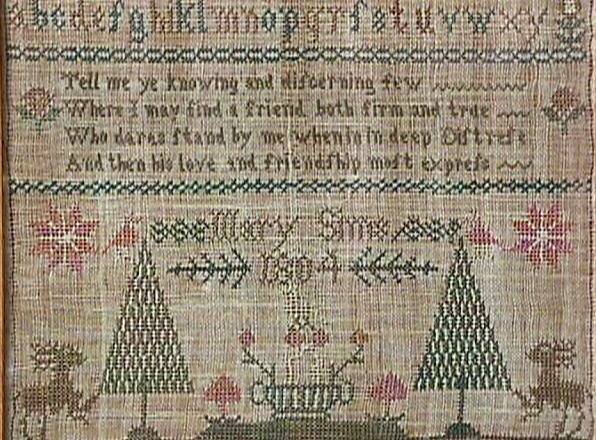 abcdefghiklmnopqrſstuvwxy
Tell me ye knowing and diſcerning few
Where I may find a friend both firm and true
Who dares ſtand by me when in in deep Diſtreſs
And then his love and friendſhip moſt expreſs
Mary Sims
1804